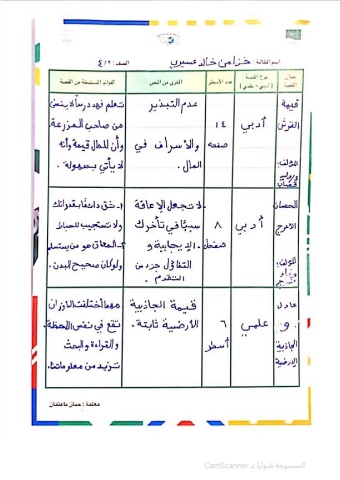 اسم الطالبة : خزامى خالد عسيري
الصف : ٤/٢
عنوان القصة
نوع القصة
(أدبي - علمي)
عدد الأسطر
المغزى من النص
الفوائد المستنبطة من القصة
قيمة
القرش
المؤلف:
أدبي
١٤
صفحه
عدم التبذير
والاسراف في
المال.
تعلم فهد درساً لا ينسى
من صاحب المزرعة.
وأن للمال قيمة وأنه
لا يأتي بسهولة.
الحصان
الأعرج
المؤلف:
أدبي
٨
صفحات
لا تجعل الإعاقة
سبباً في تأخرك
الإيجابية و
التفاؤل جزء من
التقدم.
١- ثق دائماً بقدراتك
ولا تستجيب للإحباط
٢- المعاق هو من يستسلم
ولو كان صحيح البدن.
عادل
و
الجاذبية
الأرضية
علمي
٦
أسطر
قيمة الجاذبية
الأرضية ثابتة.
مهما اختلفت الاوزان
تقع في نفس اللحظة.
والقراءة والبحث
تزيد من معلوماتنا.
معلمة : حنان باعثمان
الممسوحة ضوئيا بـ CamScanner